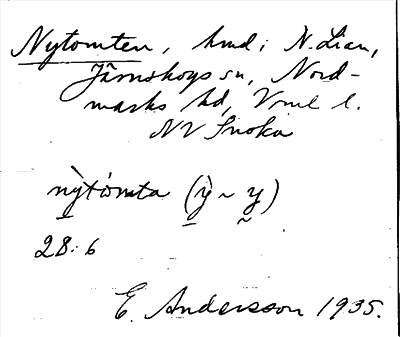 Nytomten, hmd i N. Lian,
Järnskogs sn, Nord-
marks hd, Vrml l.
NV Snoka
nỳtómta (ỳ ~ y)
28:6
E. Andersson 1935.